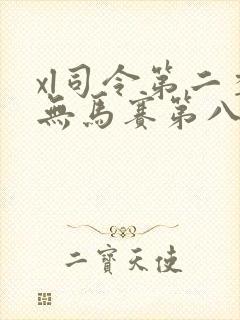 xl司令第二
無馬賽第八
二寶天使